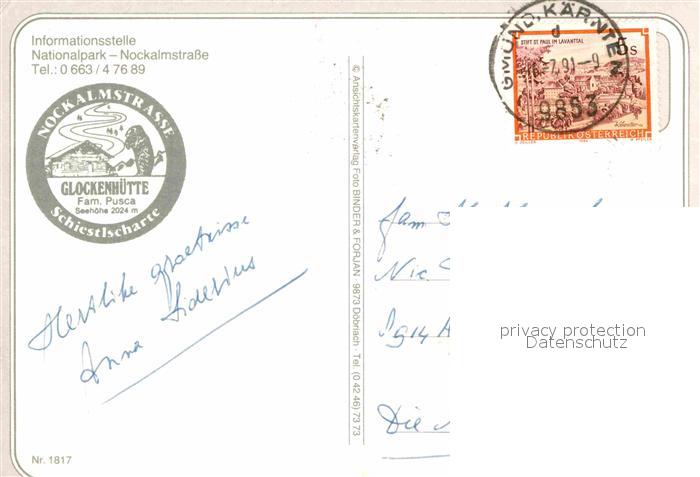 Informationsstelle
Nationalpark – Nockalmstraße
Tel.: 0 663 / 4 76 89
NOCKALMSTRASSE
GLOCKENHÜTTE
Fam. Pusca
Seehöhe 2024 m
Schiestlscharte
Hertlike groetnisse
Anna Siderius
Nr. 1817
© Ansichtskartenverlag Foto BINDER & FORJAN · 9873 Döbriach · Tel. (0 42 46) 73 73
GMÜND, KÄRNTEN
d
-7.91-9
9853
STIFT ST. PAUL IM LAVANTTAL
5s
REPUBLIK ÖSTERREICH
fam
Nic
Die
privacy protection
Datenschutz